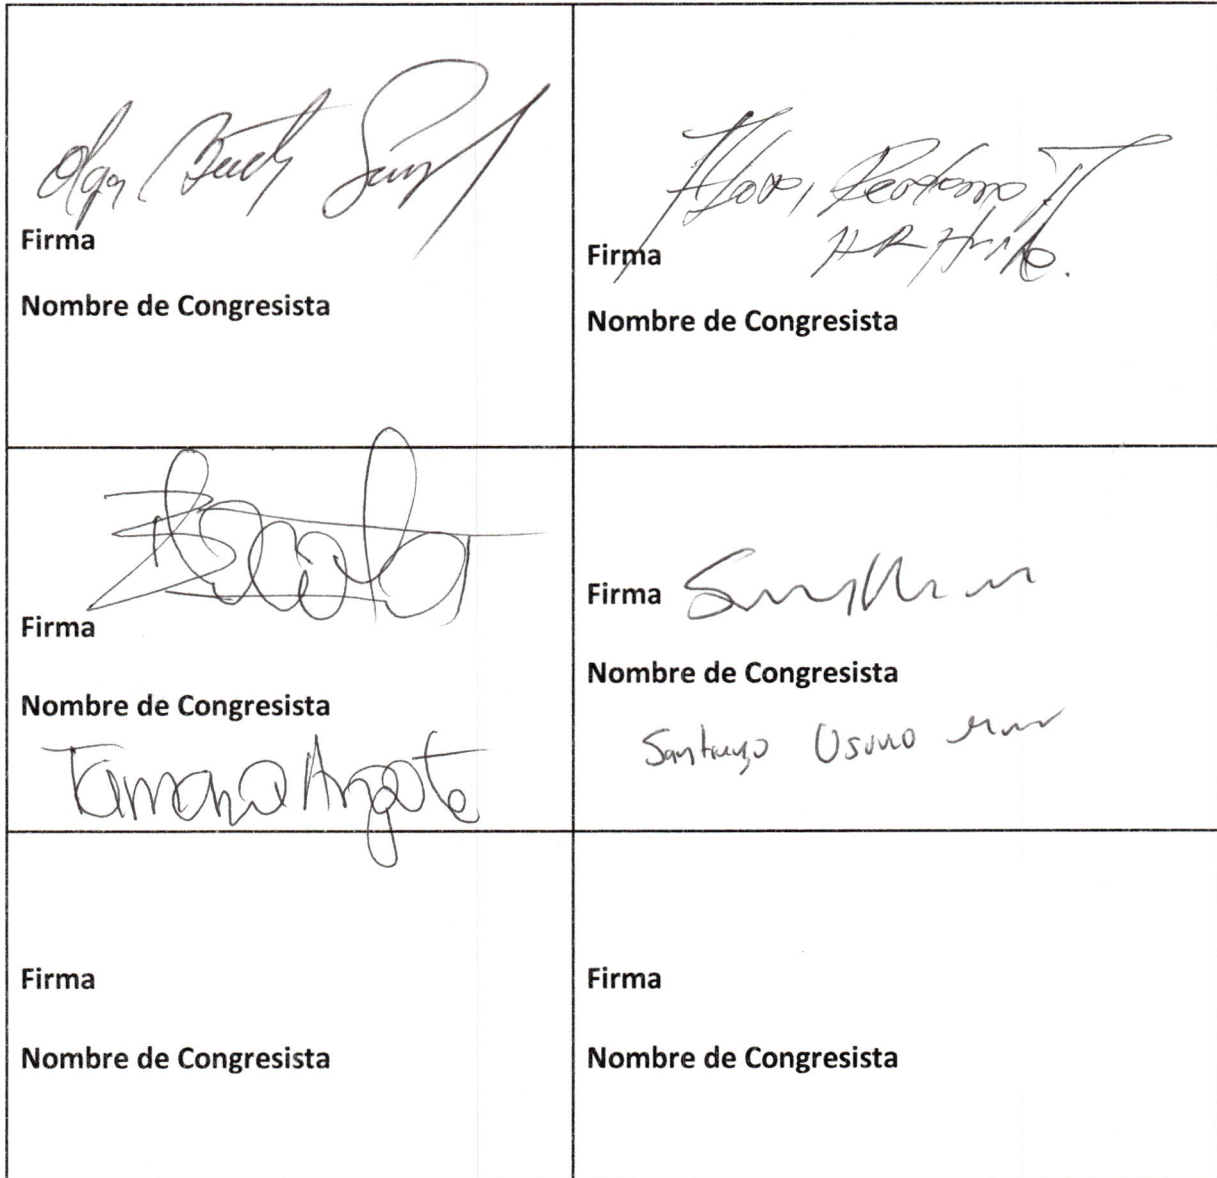 Olga
Firma
Nombre de Congresista
Flora Perdomo
HR Huila.
Firma
Nombre de Congresista
Firma
Nombre de Congresista
Tamara Argote
Firma
Nombre de Congresista
Santiago Osorio
Firma
Nombre de Congresista
Firma
Nombre de Congresista